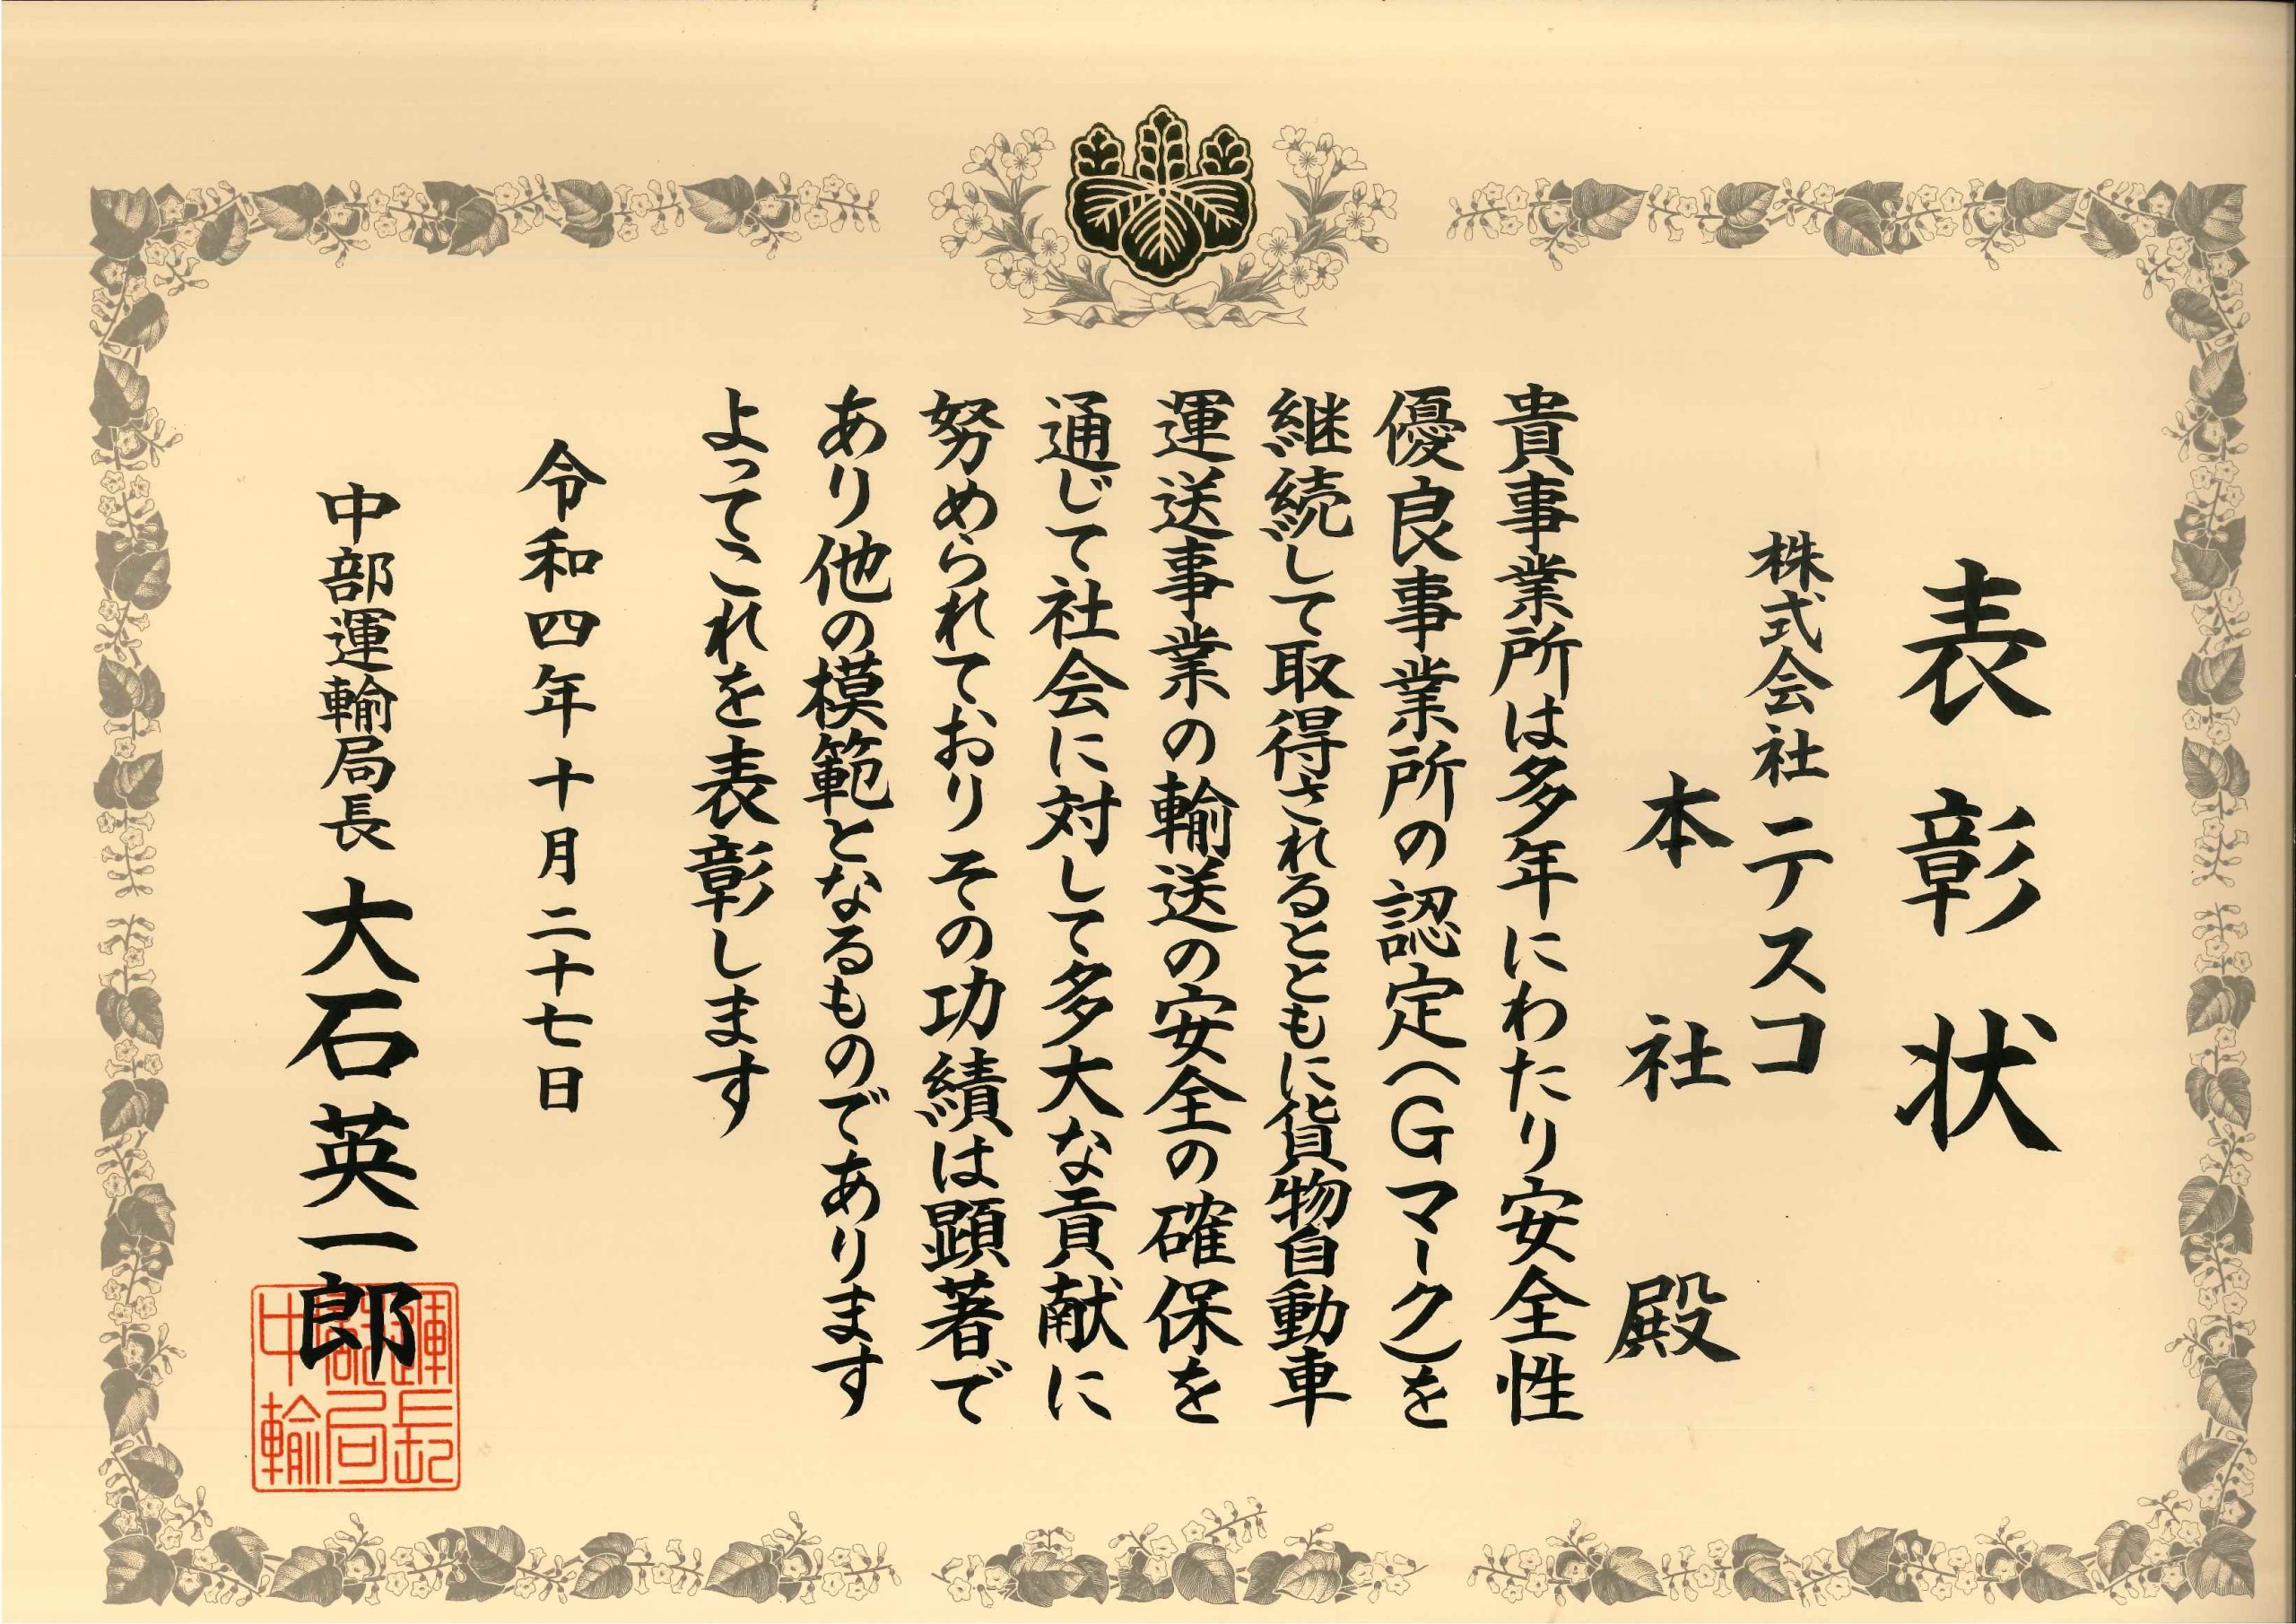 表彰状
株式会社テスコ
本社殿
貴事業所は多年にわたり安全性
優良事業所の認定(Gマーク)を
継続して取得されるとともに貨物自動車
運送事業の輸送の安全の確保を
通じて社会に対して多大な貢献に
努められておりその功績は顕著で
あり他の模範となるものであります
よってこれを表彰します
令和四年十月二十七日
中部運輸局長 大石英一郎